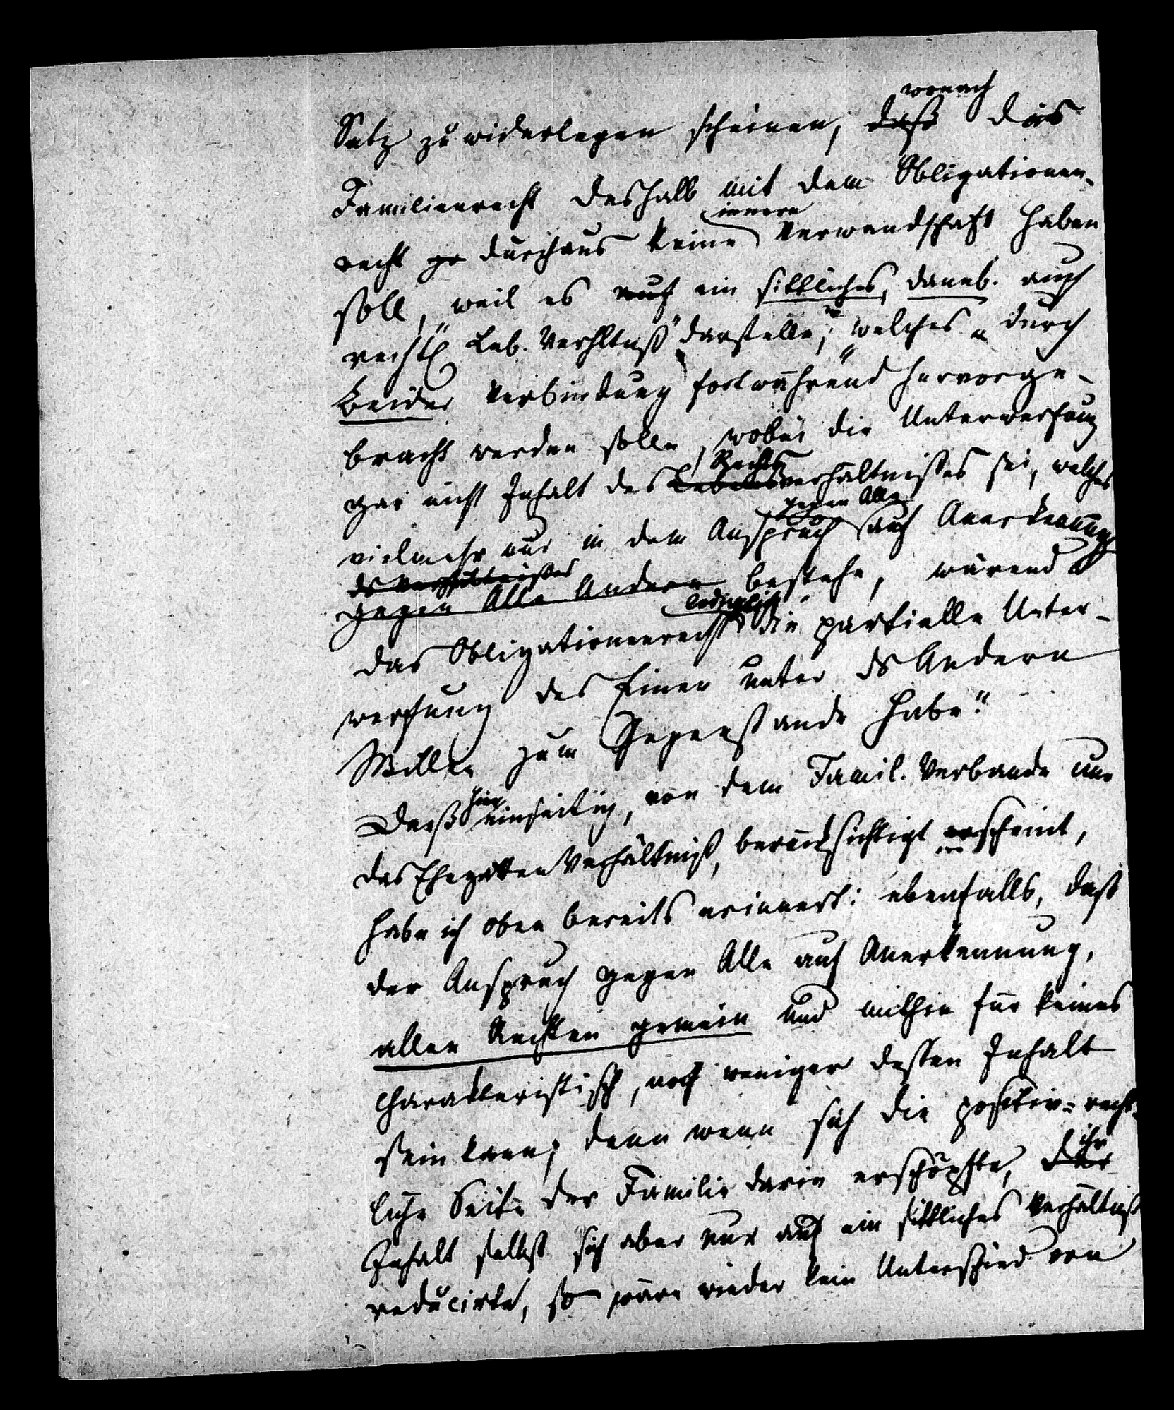 wonach
Satz zu widerlegen scheinen, daß das
Familienrecht deshalb mit dem Obligationen-
innere
recht gr durchaus keine Verwandschaft haben
soll, weil es auch ein sittliches, daneb. auch
rechtl Leb. Verhltnß darstelle, welches durch
Beider Verbindung fortwährend hervorge-
bracht werden solle, wobei die Unterwerfung
Rechts
gar nicht Inhalt des Lebensverhältnißes sei, welches
gegen Alle
vielmehr nur in dem Anspruch auf Anerkennung
ds Verhältnißes
gegen Alle Andern bestehe, wärend
lediglich
das Obligationenrecht die partielle Unter-
werfung des Einen unter ds Andern
Willen zum Gegenstande habe."
hier
Daß einseitig, von dem Famil. Verbande nur
das Ehegatten Verhältniß, berücksichtigt erscheint,
habe ich oben bereits erinnert: ebenfalls, daß
der Anspruch gegen Alle auf Anerkennung,
allen Rechten gemein und mithin für keines
charakteristisch, noch weniger dessen Inhalt
sein kann; denn wenn sich die positiv-recht-
ihr
liche Seite der Familie darin erschöpfte, der
Inhalt selbst sich aber nur auf ein sittliches Verhältniß
reducirte, so wäre wieder kein Unterschied von